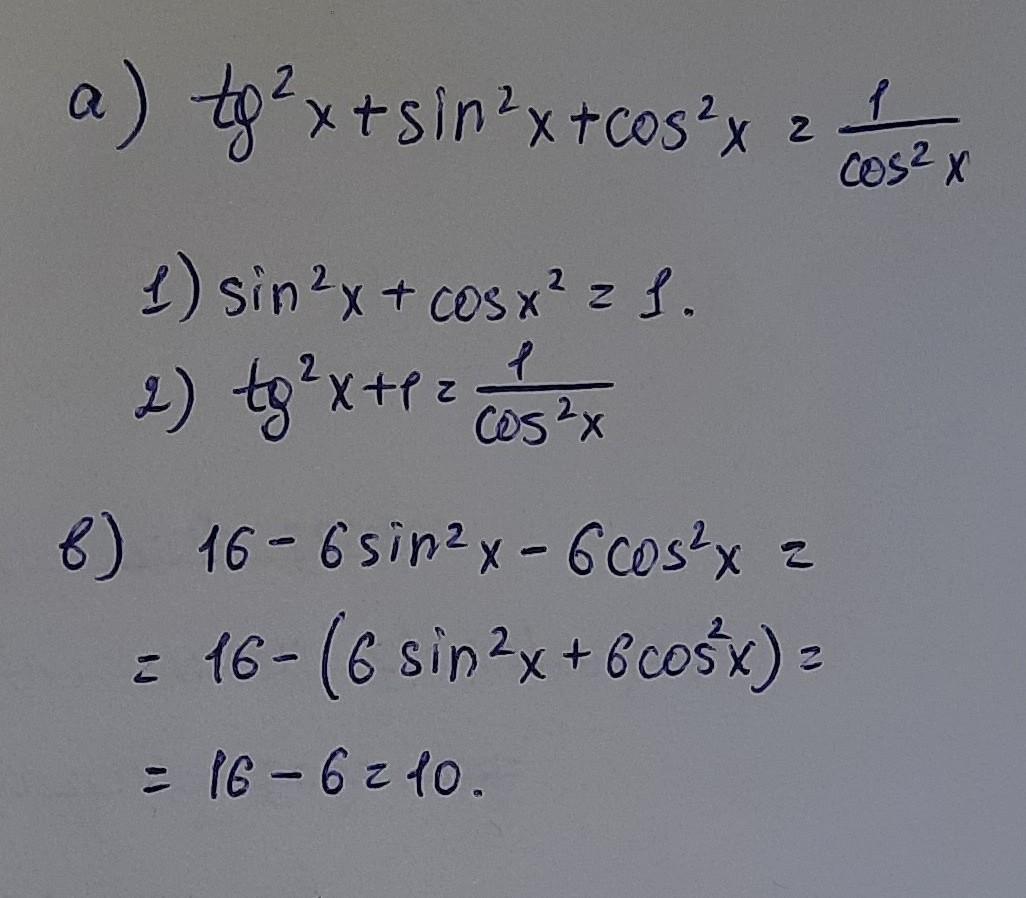 а) tg²x+sin²x+cos²x = 1/cos²x
1) sin²x + cosx² = 1.
2) tg²x+1 = 1/cos²x
в) 16 - 6sin²x - 6cos²x =
= 16 - (6 sin²x + 6cos²x) =
= 16 - 6 = 10.